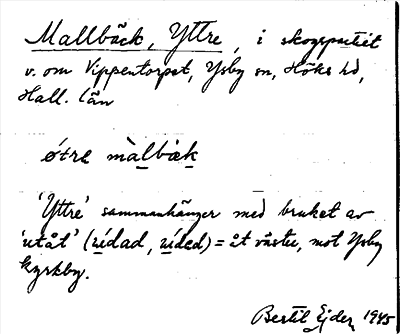 Mallbäck, Yttre, i skogspartiet
v. om Vippentorpet, Ysby sn, Höks hd,
Hall. län
ó́tre màlbæk
'Yttre' sammanhänger med bruket av
'utåt' (údad, úded) = åt väster, mot Ysby
kyrkby.
Bertil Ejder 1945